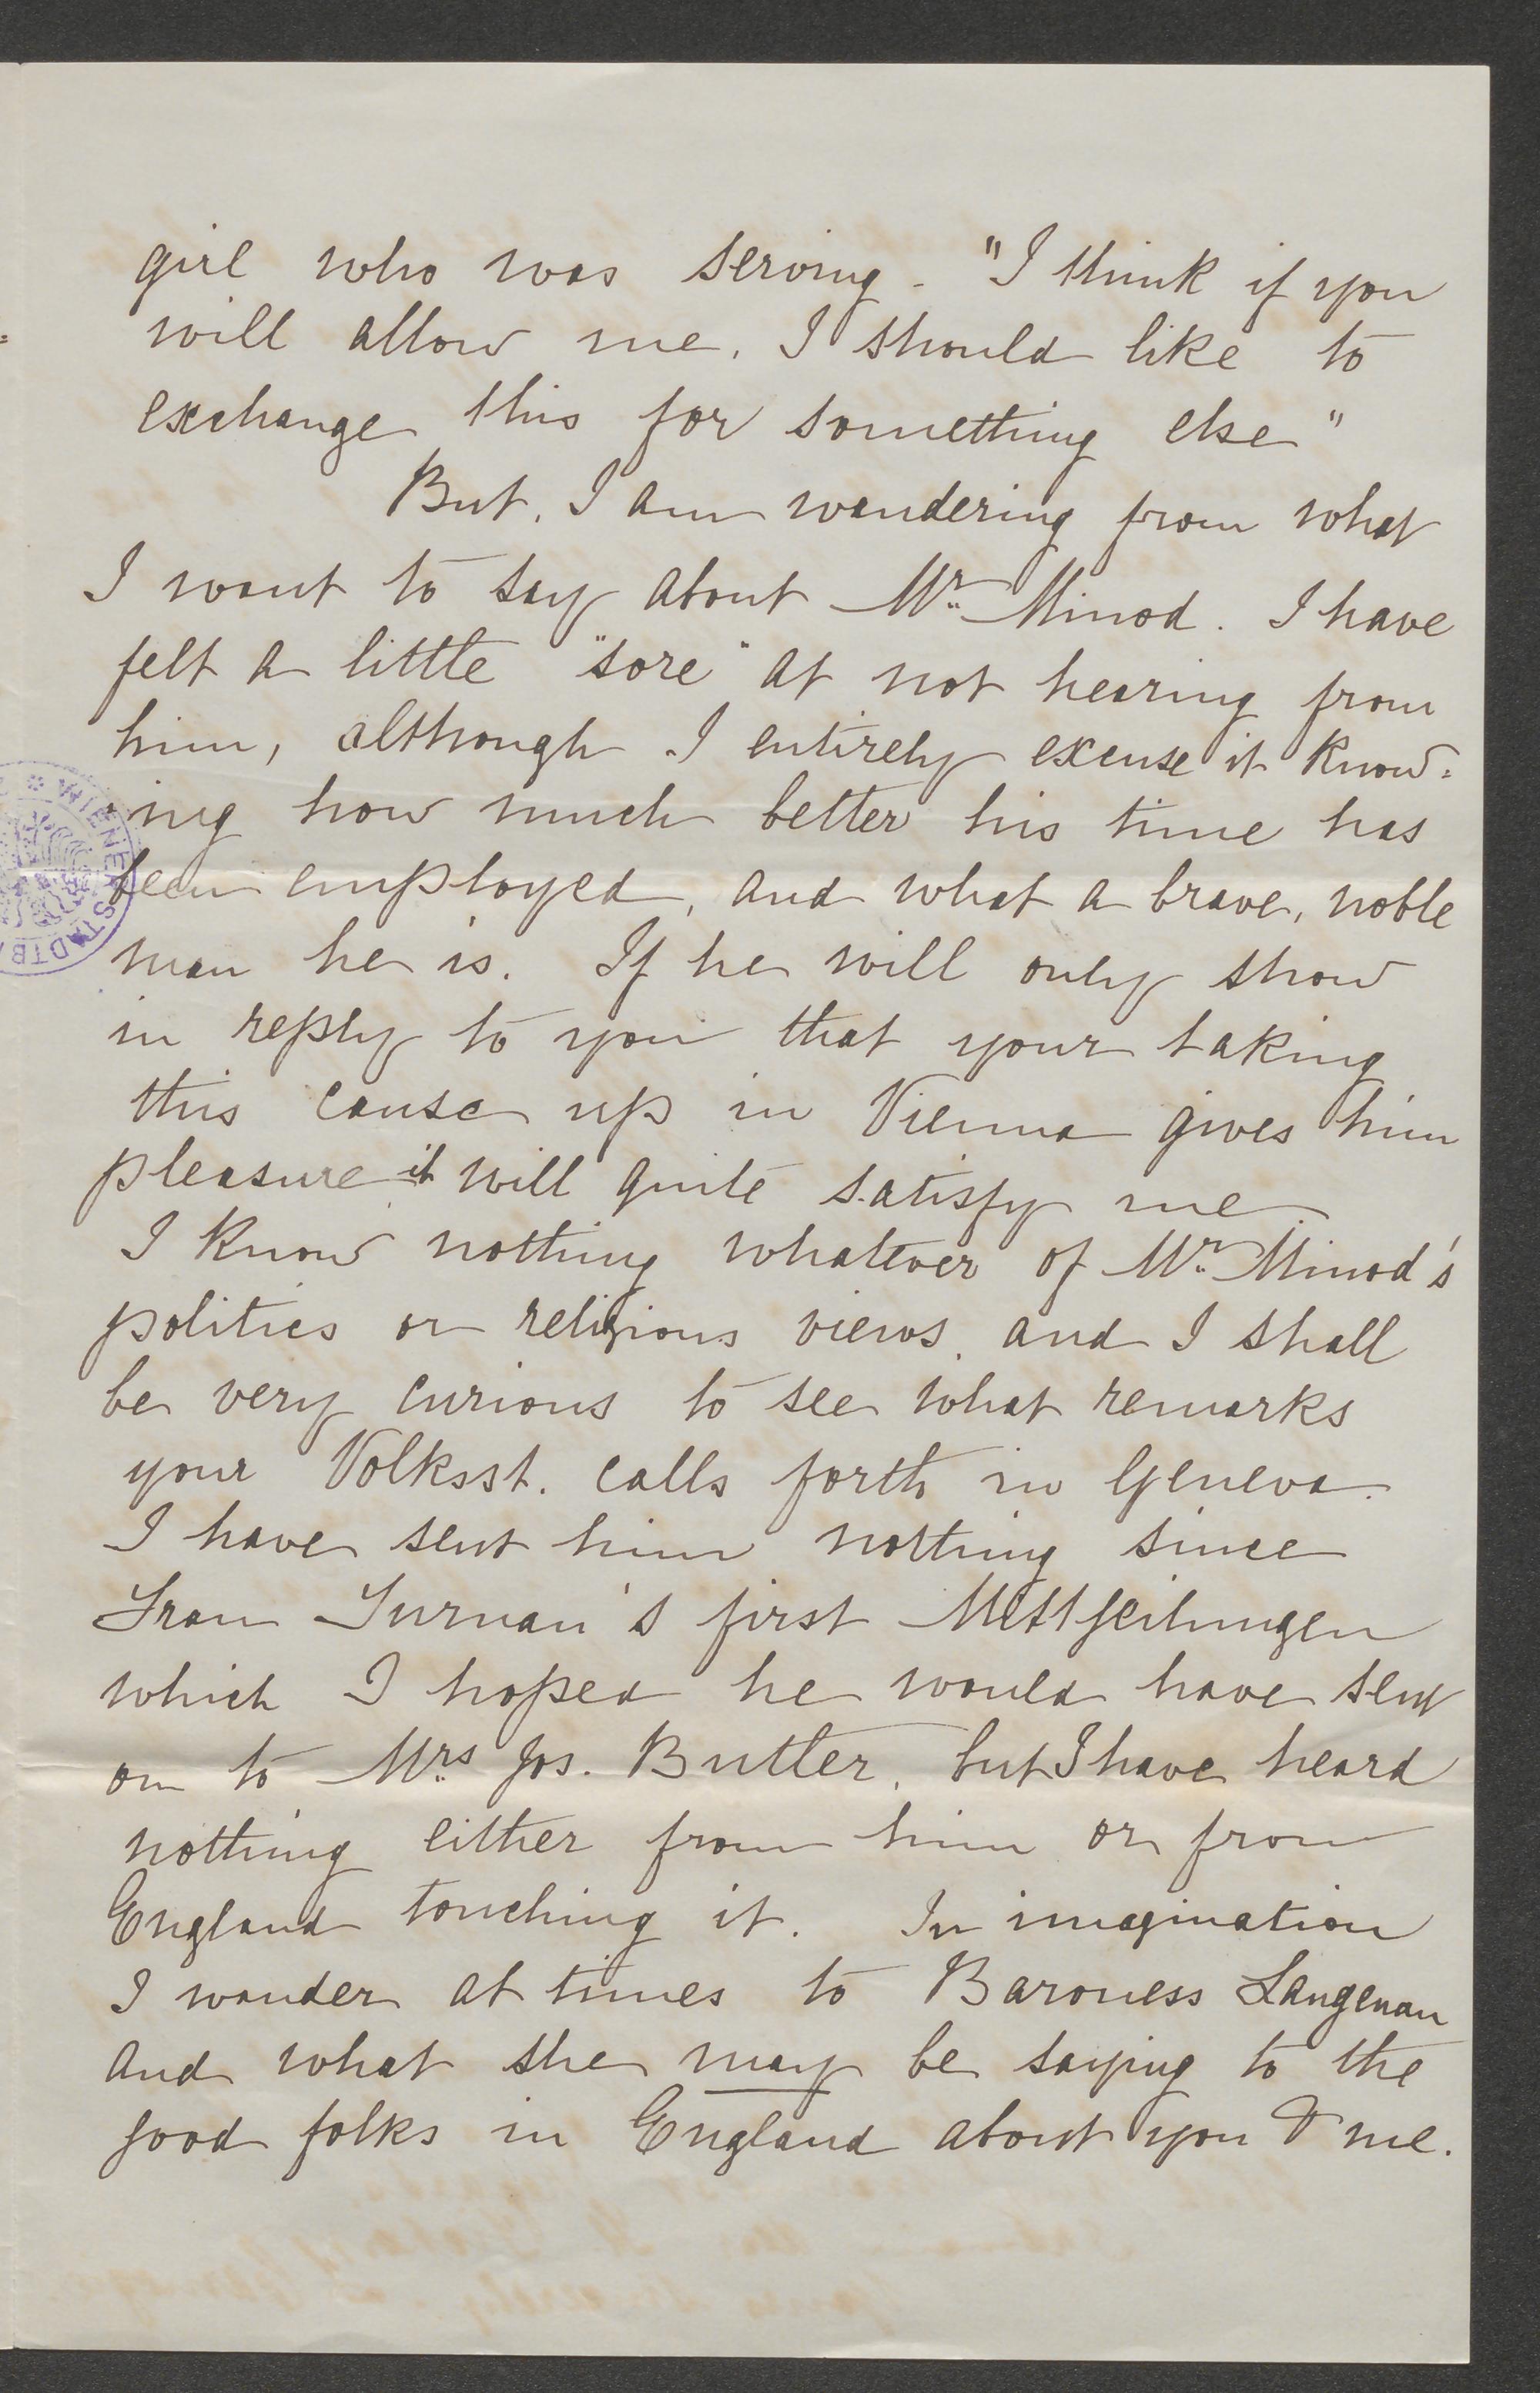 girl who was serving - "I think if you
will allow me, I should like to
exchange this for something else"
But, I am wandering from what
I want to say about Mr. Minod. I have
felt a little "sore" at not hearing from
him, although I entirely excuse it know=
ing how much better his time has
been employed, and what a brave, noble
man he is. If he will only show
in reply to you that your taking
this cause up in Vienna gives him
pleasure it will quite satisfy me
I know nothing whatever of Mr. Minod's
politics or religious views, and I shall
be very curious to see what remarks
your Volksst. calls forth in Geneva.
I have sent him nothing since
Frau Turnau's first Mittheilungen
which I hoped he would have sent
on to Mrs. Jos. Butler, but I have heard
nothing either from him or from
England touching it. In imagination
I wander at times to Baroness Langenau
and what she may be saying to the
good folks in England about you & me.
WIENER STADTB